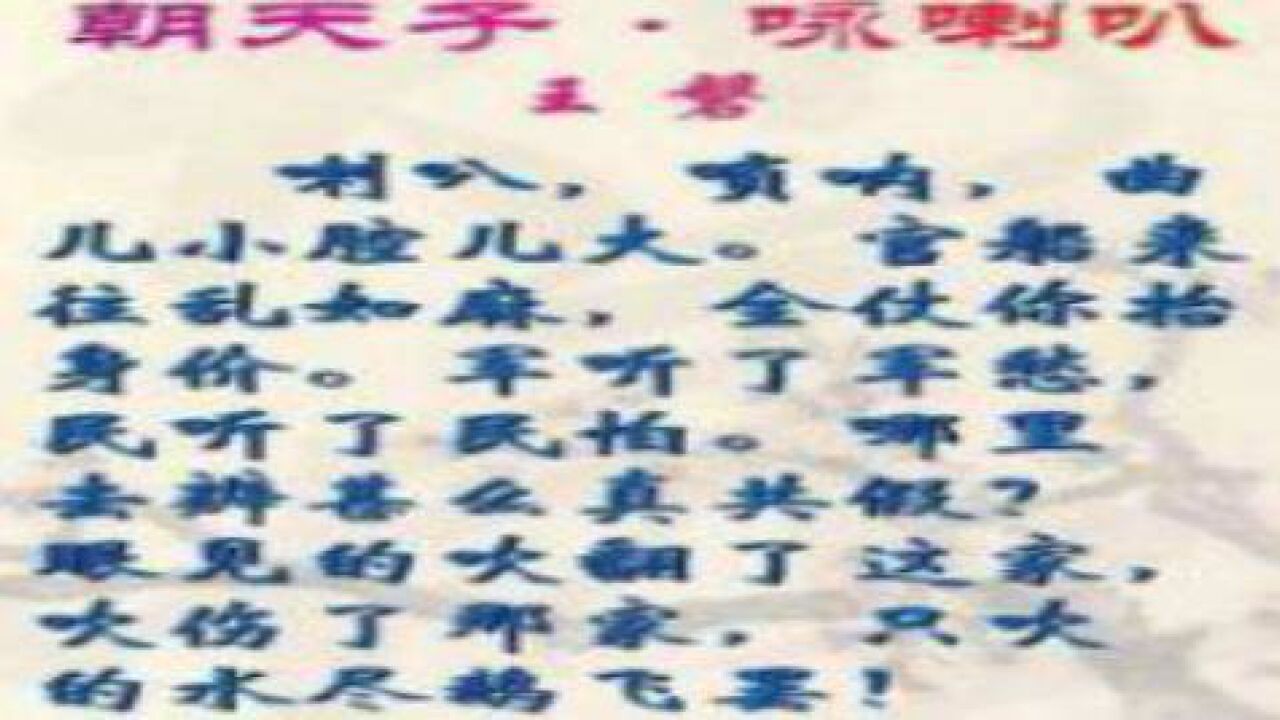 朝天子·咏喇叭
王磐
喇叭，唢呐，曲
儿小腔儿大。官船来
往乱如麻，全仗你抬
身价。军听了军愁，
民听了民怕。哪里
去辨甚么真共假？
眼见的吹翻了这家，
吹伤了那家，只吹
的水尽鹅飞罢！